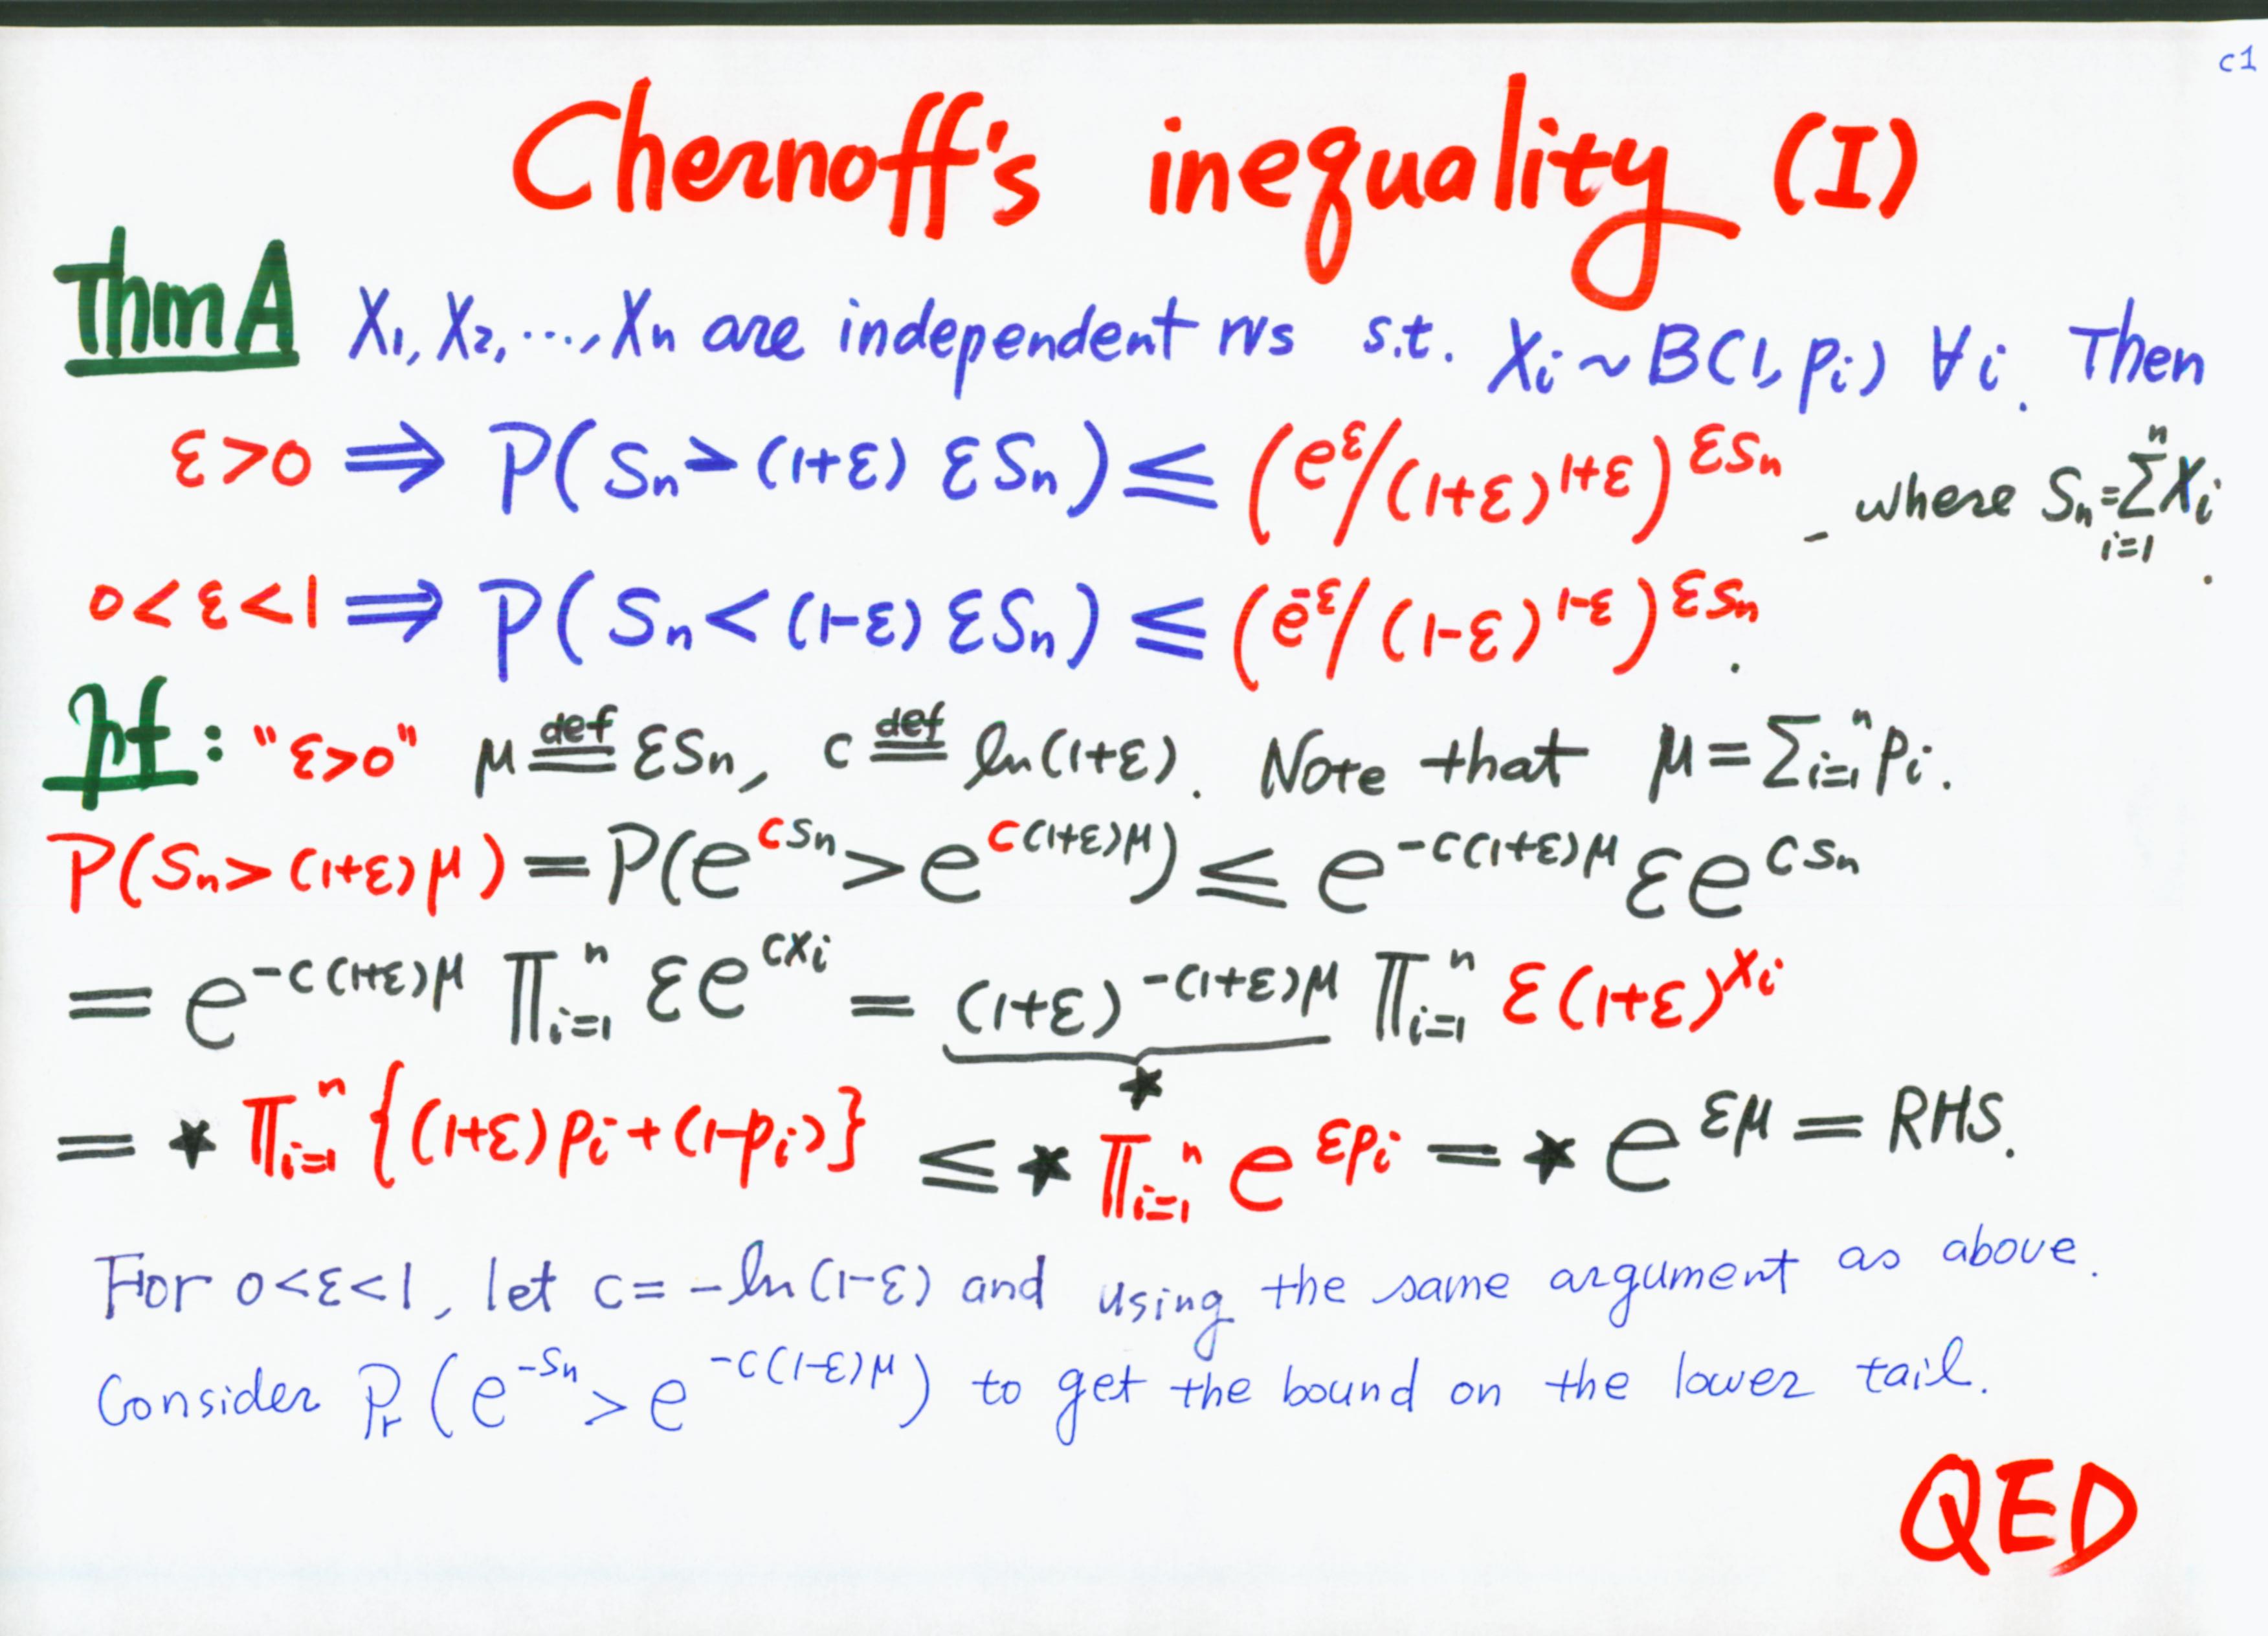 c1
Chernoff's inequality (I)
Thm A X₁, X₂, ..., Xn are independent rvs s.t. Xi ~ B(1, pi) ∀i. Then
ε>0 ⟹ P(Sn > (1+ε) ℰSn) ≤ (e^ε/(1+ε)^{1+ε})^{ℰSn} , where Sn = Σ_{i=1}^n Xi.
0<ε<1 ⟹ P(Sn < (1-ε) ℰSn) ≤ (e^{-ε}/(1-ε)^{1-ε})^{ℰSn}.
pf: "ε>0" μ ≝ ℰSn, c ≝ ln(1+ε). Note that μ = Σ_{i=1}^n pi.
P(Sn > (1+ε)μ) = P(e^{cSn} > e^{c(1+ε)μ}) ≤ e^{-c(1+ε)μ} ℰe^{cSn}
= e^{-c(1+ε)μ} ∏_{i=1}^n ℰe^{cXi} = (1+ε)^{-(1+ε)μ} ∏_{i=1}^n ℰ(1+ε)^{Xi}
★
= ★ ∏_{i=1}^n {(1+ε)pi + (1-pi)} ≤ ★ ∏_{i=1}^n e^{εpi} = ★ e^{εμ} = RHS.
For 0<ε<1, let c = -ln(1-ε) and using the same argument as above.
Consider Pr(e^{-Sn} > e^{-c(1-ε)μ}) to get the bound on the lower tail.
QED